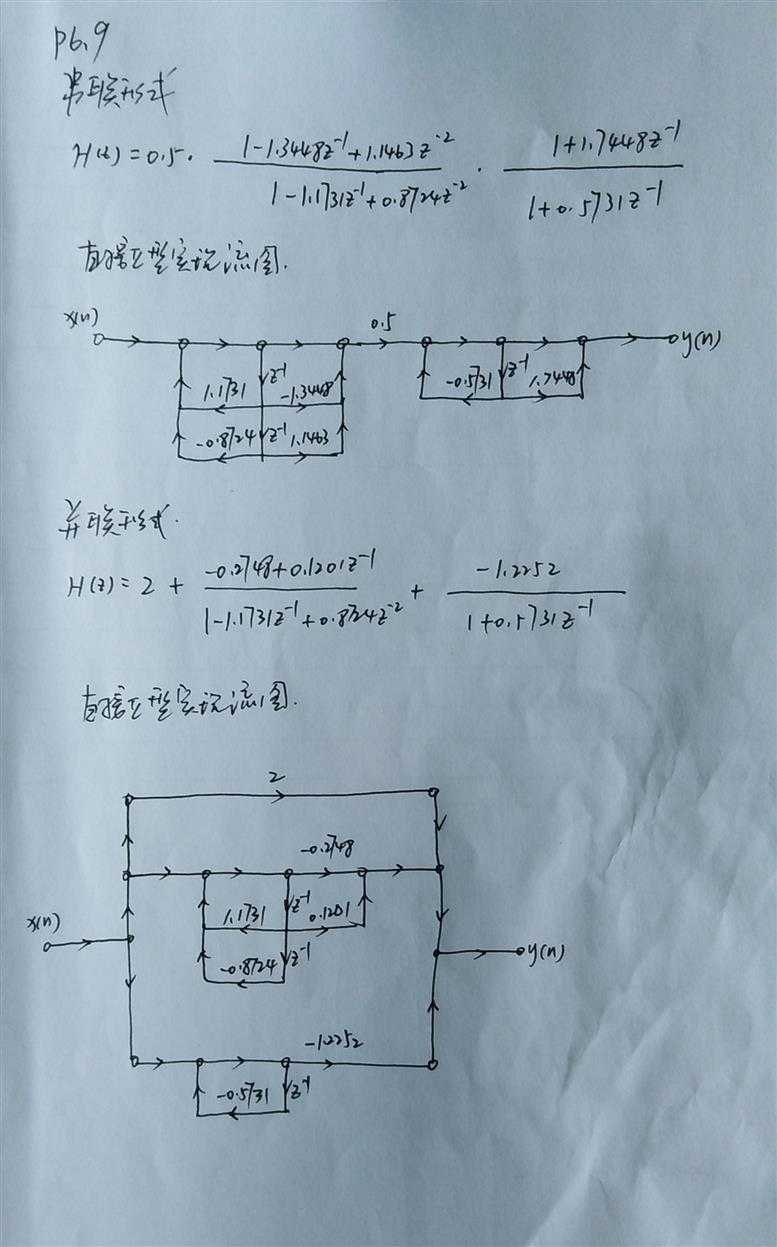 P6.9
串联形式
H(z) = 0.5 · (1-1.3448z⁻¹+1.1463z⁻²)/(1-1.1731z⁻¹+0.8724z⁻²) · (1+1.7448z⁻¹)/(1+0.5731z⁻¹)
直接II型实现流图.
x(n) 0.5 y(n)
1.1731 z⁻¹ -1.3448 -0.5731 z⁻¹ 1.7448
-0.8724 z⁻¹ 1.1463
并联形式.
H(z) = 2 + (-0.2748+0.1201z⁻¹)/(1-1.1731z⁻¹+0.8724z⁻²) + (-1.2252)/(1+0.5731z⁻¹)
直接II型实现流图.
2
-0.2748
1.1731 z⁻¹ 0.1201
x(n) -0.8724 z⁻¹ y(n)
-1.2252
-0.5731 z⁻¹